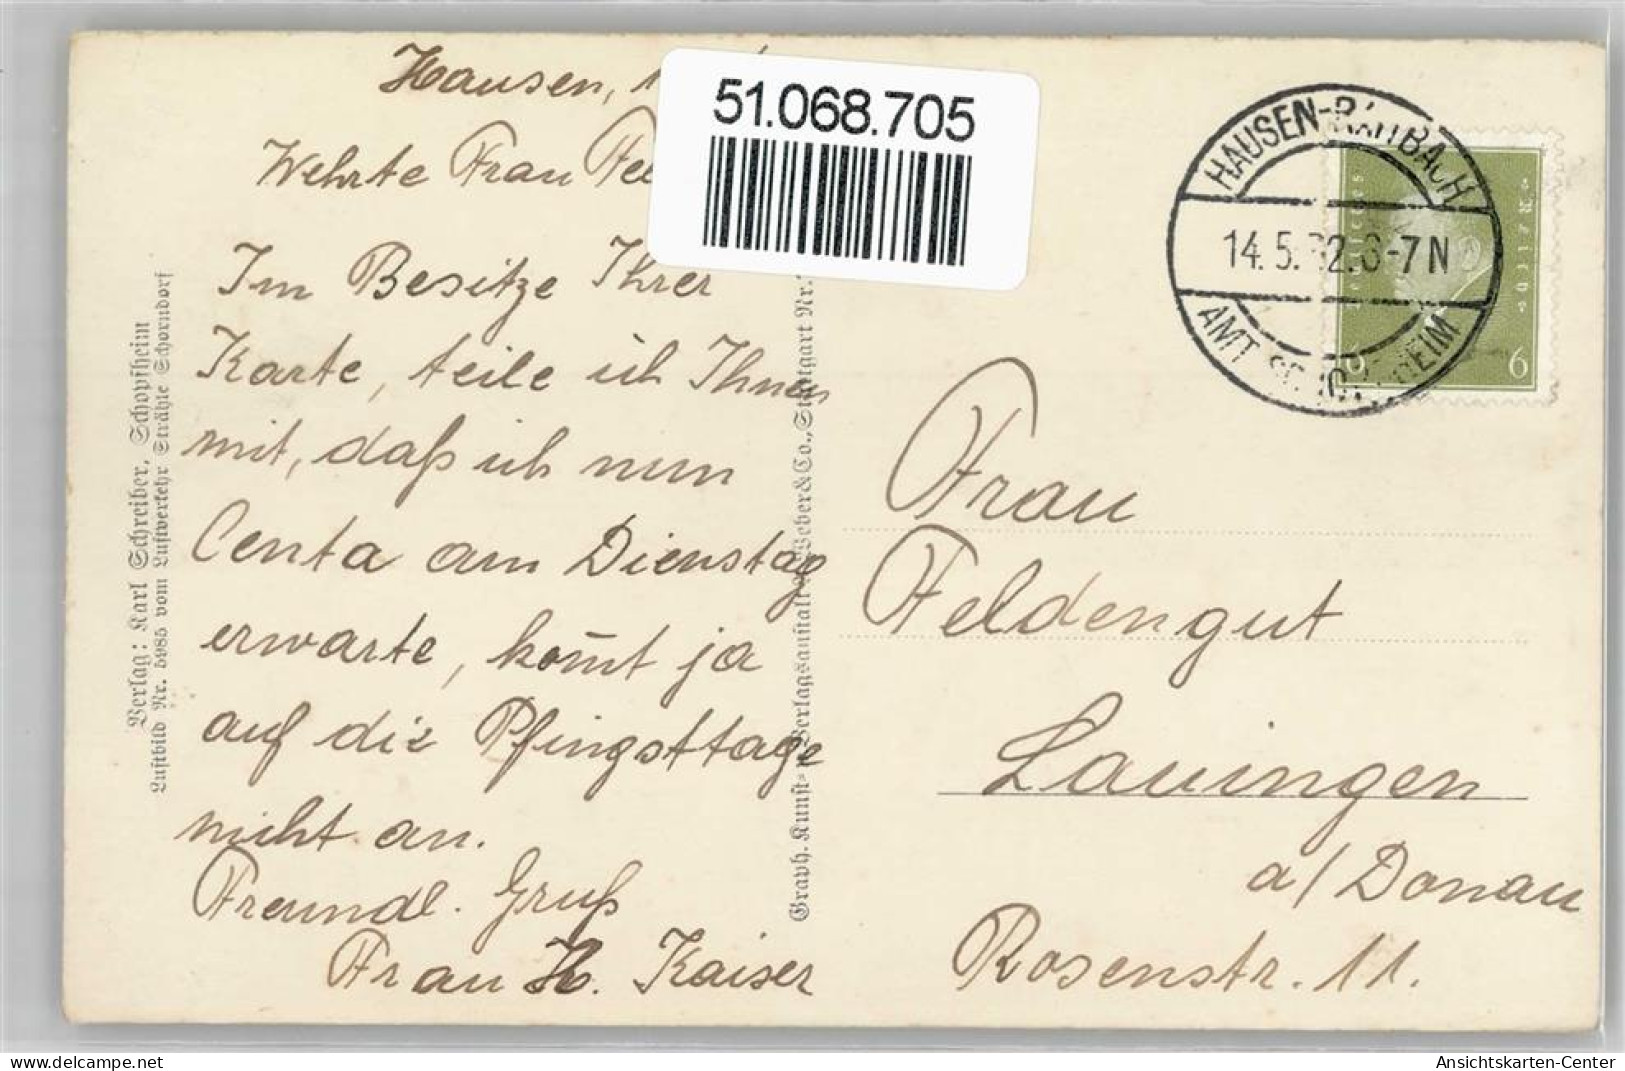 Hausen,
51.068.705
Wehrte Frau
Im Besitze Ihrer
Karte, teile ich Ihnen
mit, daß ich nun
Centa am Dienstag
erwarte, kom̄t ja
auf die Pfingsttage
nicht an.
Freundl. Gruß
Frau H. Kaiser
Verlag: Karl Schreiber, Schopfheim
Luftbild Nr. 5985 vom Luftverkehr Strähle Schorndorf
Graph. Kunst- u. Verlagsanstalt Weber & Co., Stuttgart Nr.
HAUSEN-RAITBACH
14.5.32.6-7N
AMT SCHOPFHEIM
Deutsches Reich
6 6
Frau
Feldengut
Lauingen
a/Donau
Rosenstr. 11.
www.delcampe.net
your_collections
Ansichtskarten-Center